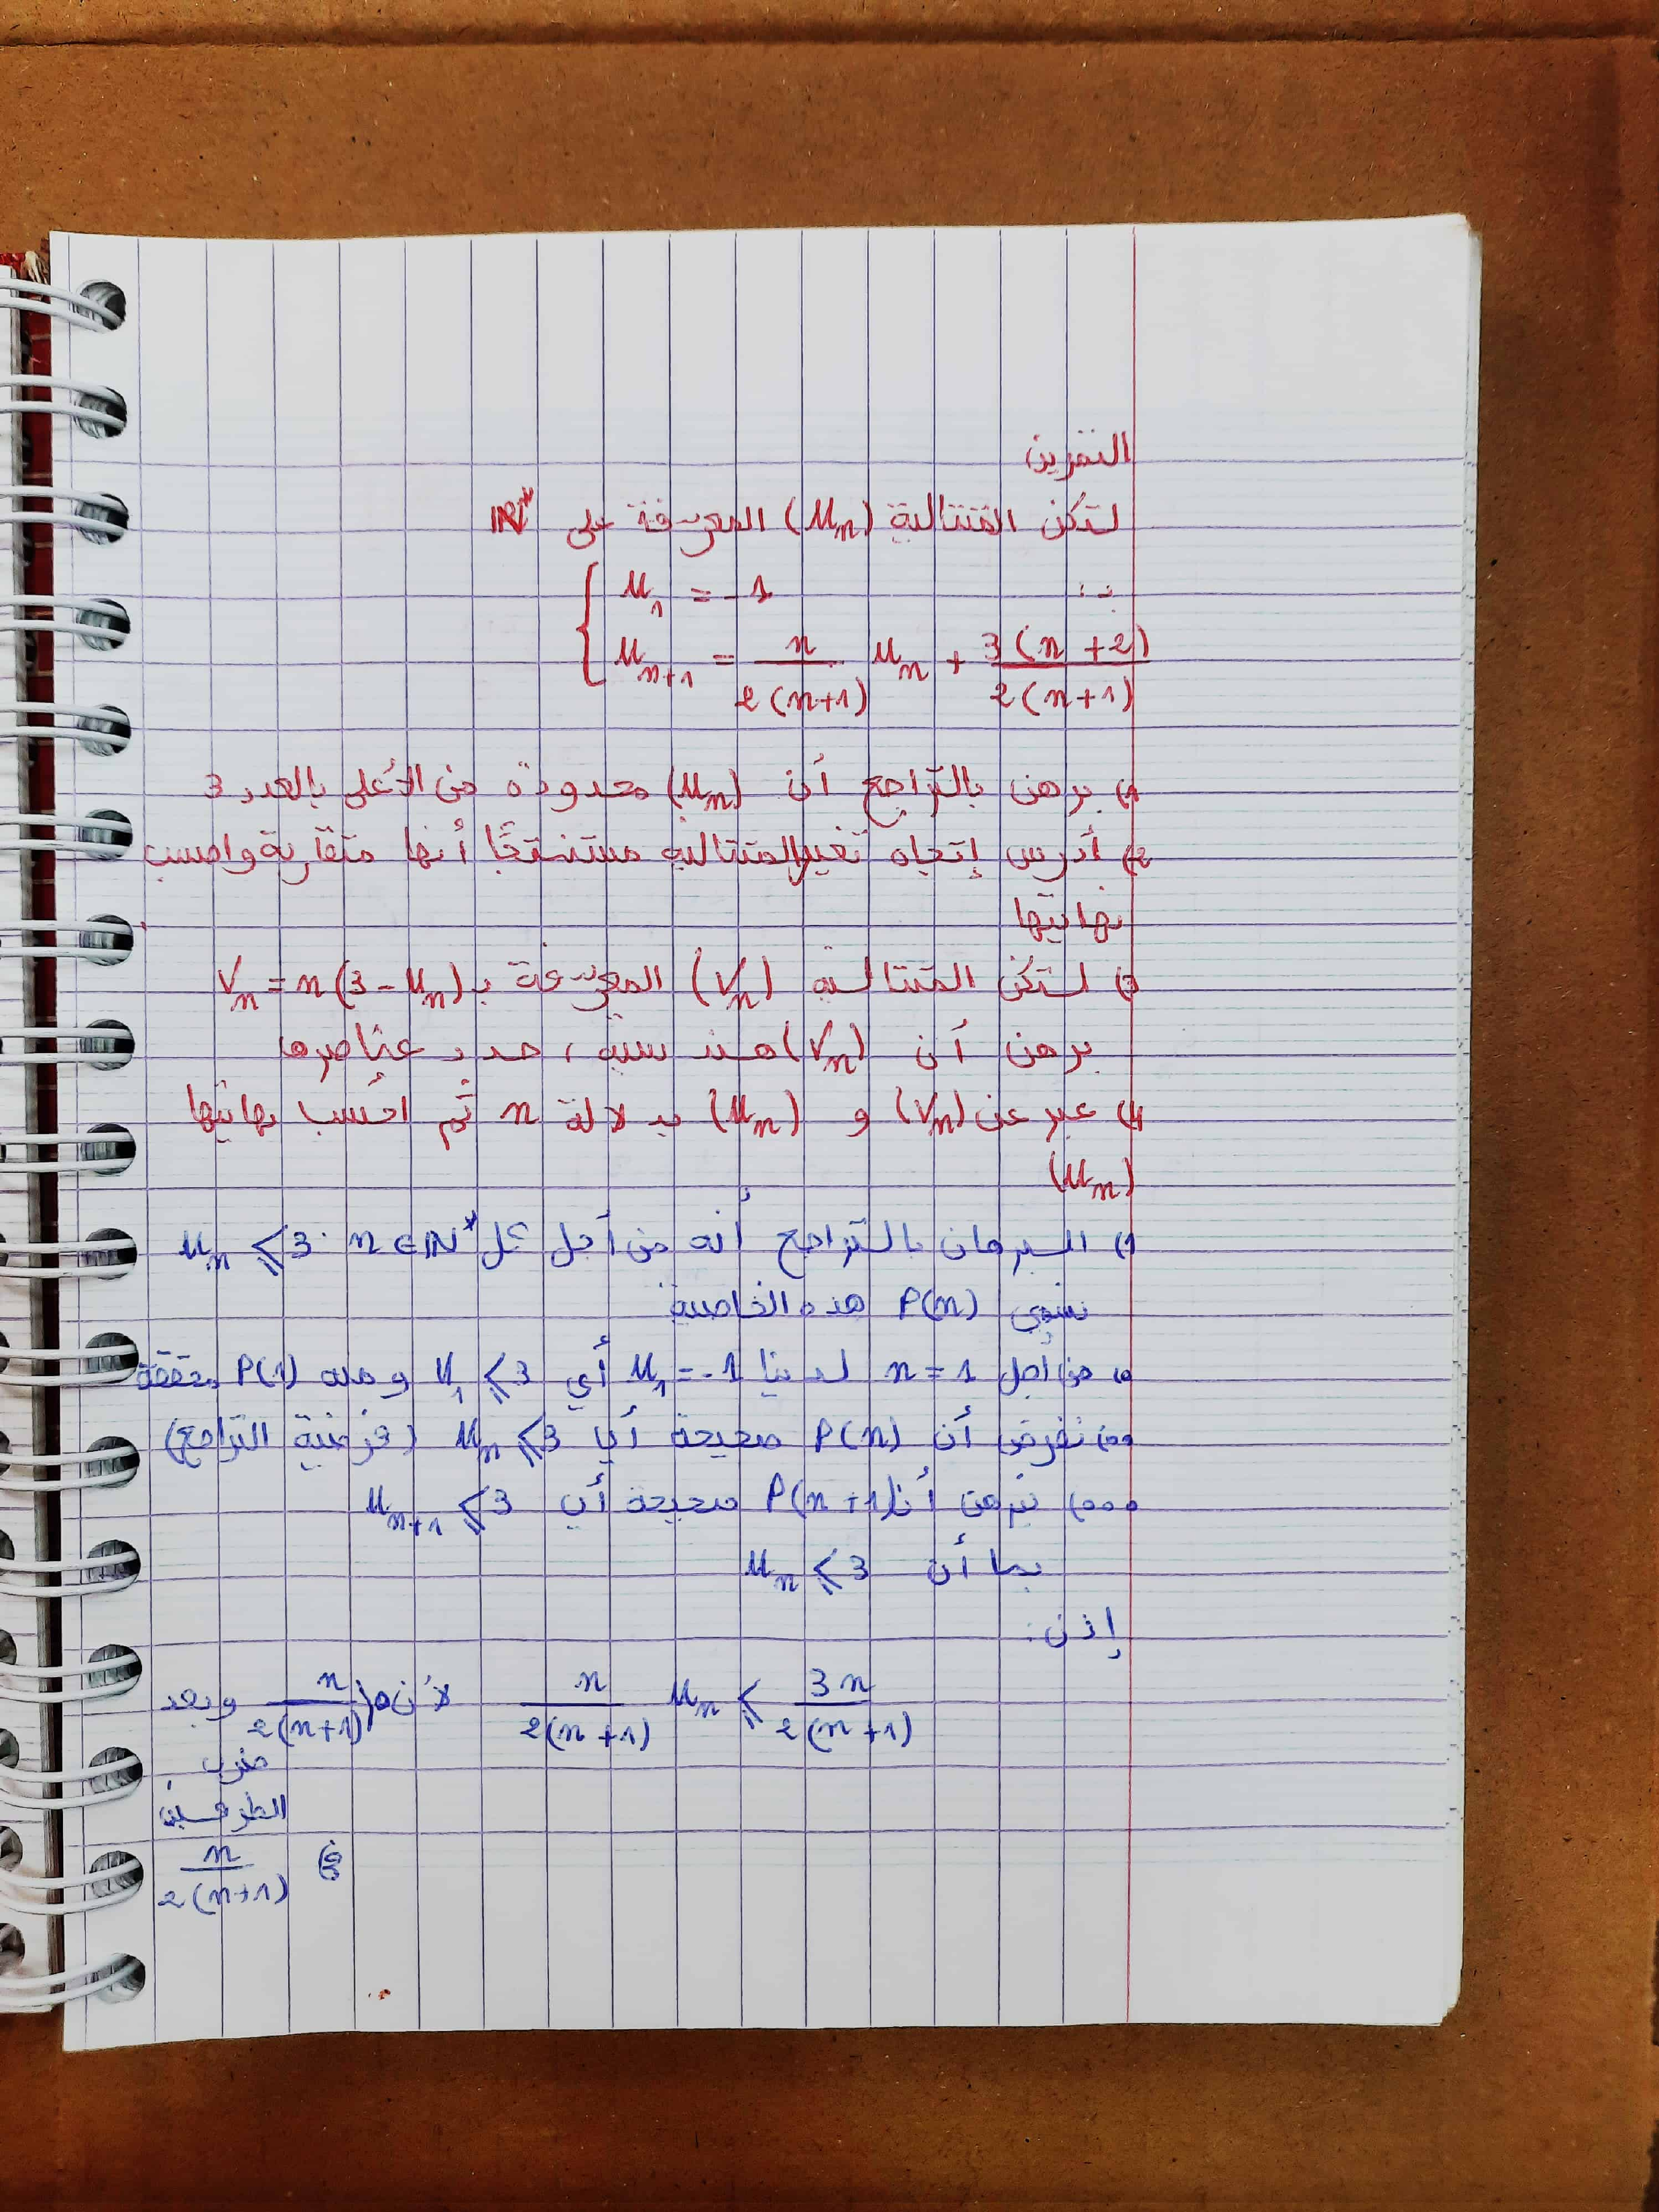 التمرين
لتكن المتتالية (Un) المعرفة على IN*
بـ:
{ U1 = -1
Un+1 = n/2(n+1) Un + 3(n+2)/2(n+1)
1) برهن بالتراجع أن (Un) محدودة من الأعلى بالعدد 3
2) أدرس إتجاه تغير المتتالية مستنتجًا أنها متقاربة واحسب
نهايتها
3) لتكن المتتالية (Vn) المعرفة بـ Vn = n(3-Un)
برهن أن (Vn) هندسية، حدد عناصرها
4) عبر عن (Vn) و (Un) بدلالة n ثم احسب نهايتها
(Un)
1) البرهان بالتراجع أنه من أجل كل n∈IN* Un ⩽ 3
نسمي P(n) هذه الخاصية
o) من أجل n = 1 لدينا U1 = -1 أي U1 ⩽ 3 ومنه P(1) محققة
oo) نفرض أن P(n) صحيحة أي Un ⩽ 3 (فرضية التراجع)
ooo) نبرهن أن P(n+1) صحيحة أي Un+1 ⩽ 3
بما أن Un ⩽ 3
إذن:
n/2(n+1) Un ⩽ 3n/2(n+1) لأن n/2(n+1) > 0 وبعد
ضرب
الطرفين
في n/2(n+1)